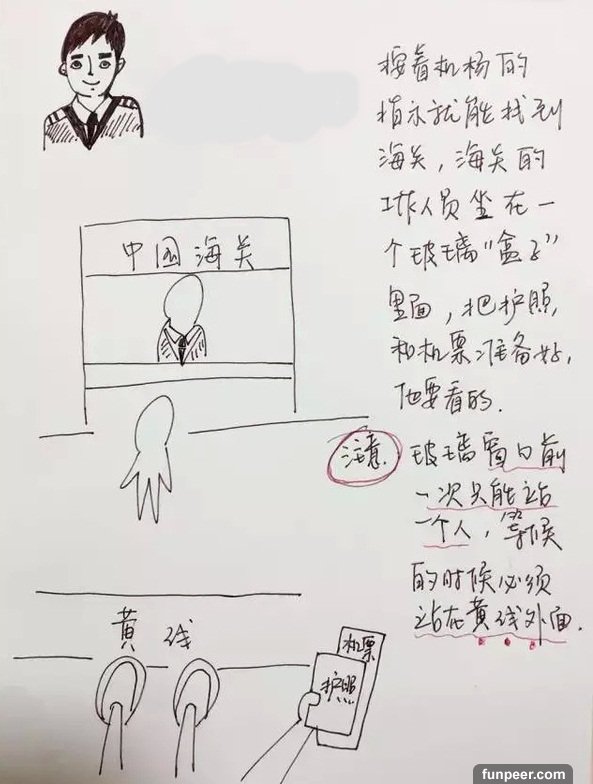 按着机杨的
指示就能找到
海关，海关的
工作人员坐在一
个玻璃“盒子”
里面，把护照
和机票准备好，
他要看的.
中国海关
注意.
玻璃窗口前
一次只能站
一个人，等候
的时候必须
站在黄线外面.
黄线
机票
护照
funpeer.com